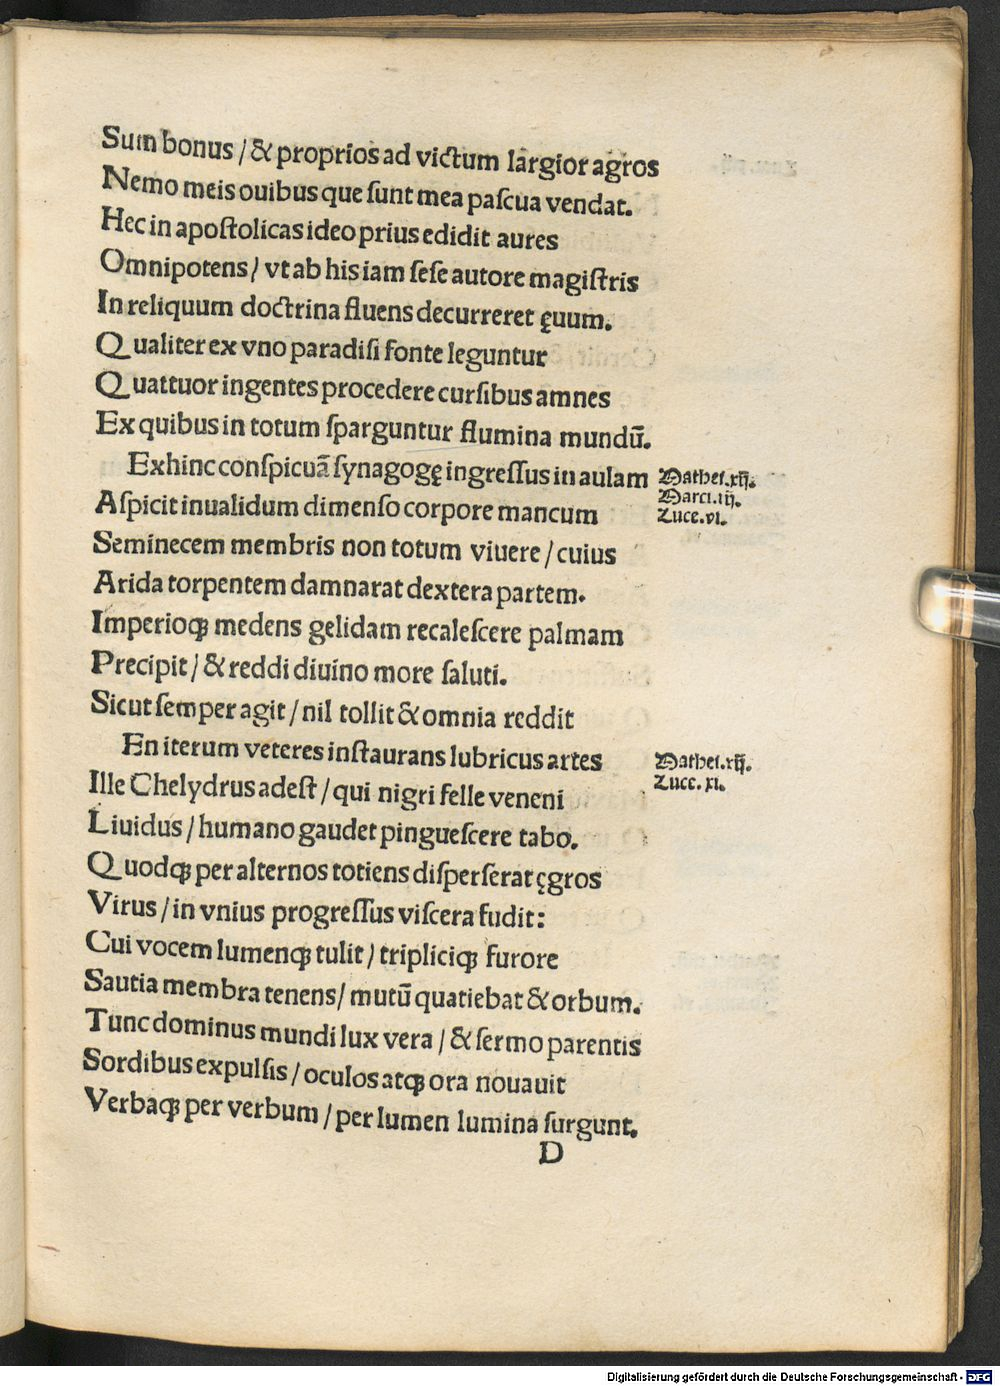 Sum bonus / & proprios ad victum largior agros
Nemo meis ouibus que ſunt mea paſcua vendat.
Hec in apoſtolicas ideo prius edidit aures
Omnipotens / vt ab his iam ſeſe autore magiſtris
In reliquum doctrina fluens decurreret ęuum.
Qualiter ex vno paradiſi fonte leguntur
Quattuor ingentes procedere curſibus amnes
Ex quibus in totum ſparguntur flumina mundū.
Exhinc conſpicuā ſynagogę ingreſſus in aulam
Mathei.xij.
Aſpicit inualidum dimenſo corpore mancum
Marci.iij.
Luce.vi.
Seminecem membris non totum viuere / cuius
Arida torpentem damnarat dextera partem.
Imperioꝗ medens gelidam recaleſcere palmam
Precipit / & reddi diuino more ſaluti.
Sicut ſemper agit / nil tollit & omnia reddit
En iterum veteres inſtaurans lubricus artes
Mathei.xij.
Ille Chelydrus adeſt / qui nigri felle veneni
Luce.xi.
Liuidus / humano gaudet pingueſcere tabo.
Quodꝗ per alternos totiens diſperſerat ęgros
Virus / in vnius progreſſus viſcera fudit:
Cui vocem lumenꝗ tulit / tripliciꝗ furore
Sautia membra tenens / mutū quatiebat & orbum.
Tunc dominus mundi lux vera / & ſermo parentis
Sordibus expulſis / oculos atꝗ ora nouauit
Verbaꝗ per verbum / per lumen lumina ſurgunt.
D
Digitalisierung gefördert durch die Deutsche Forschungsgemeinschaft - DFG